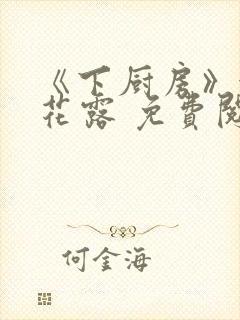 《下厨房》
花露 免費閱
何金海